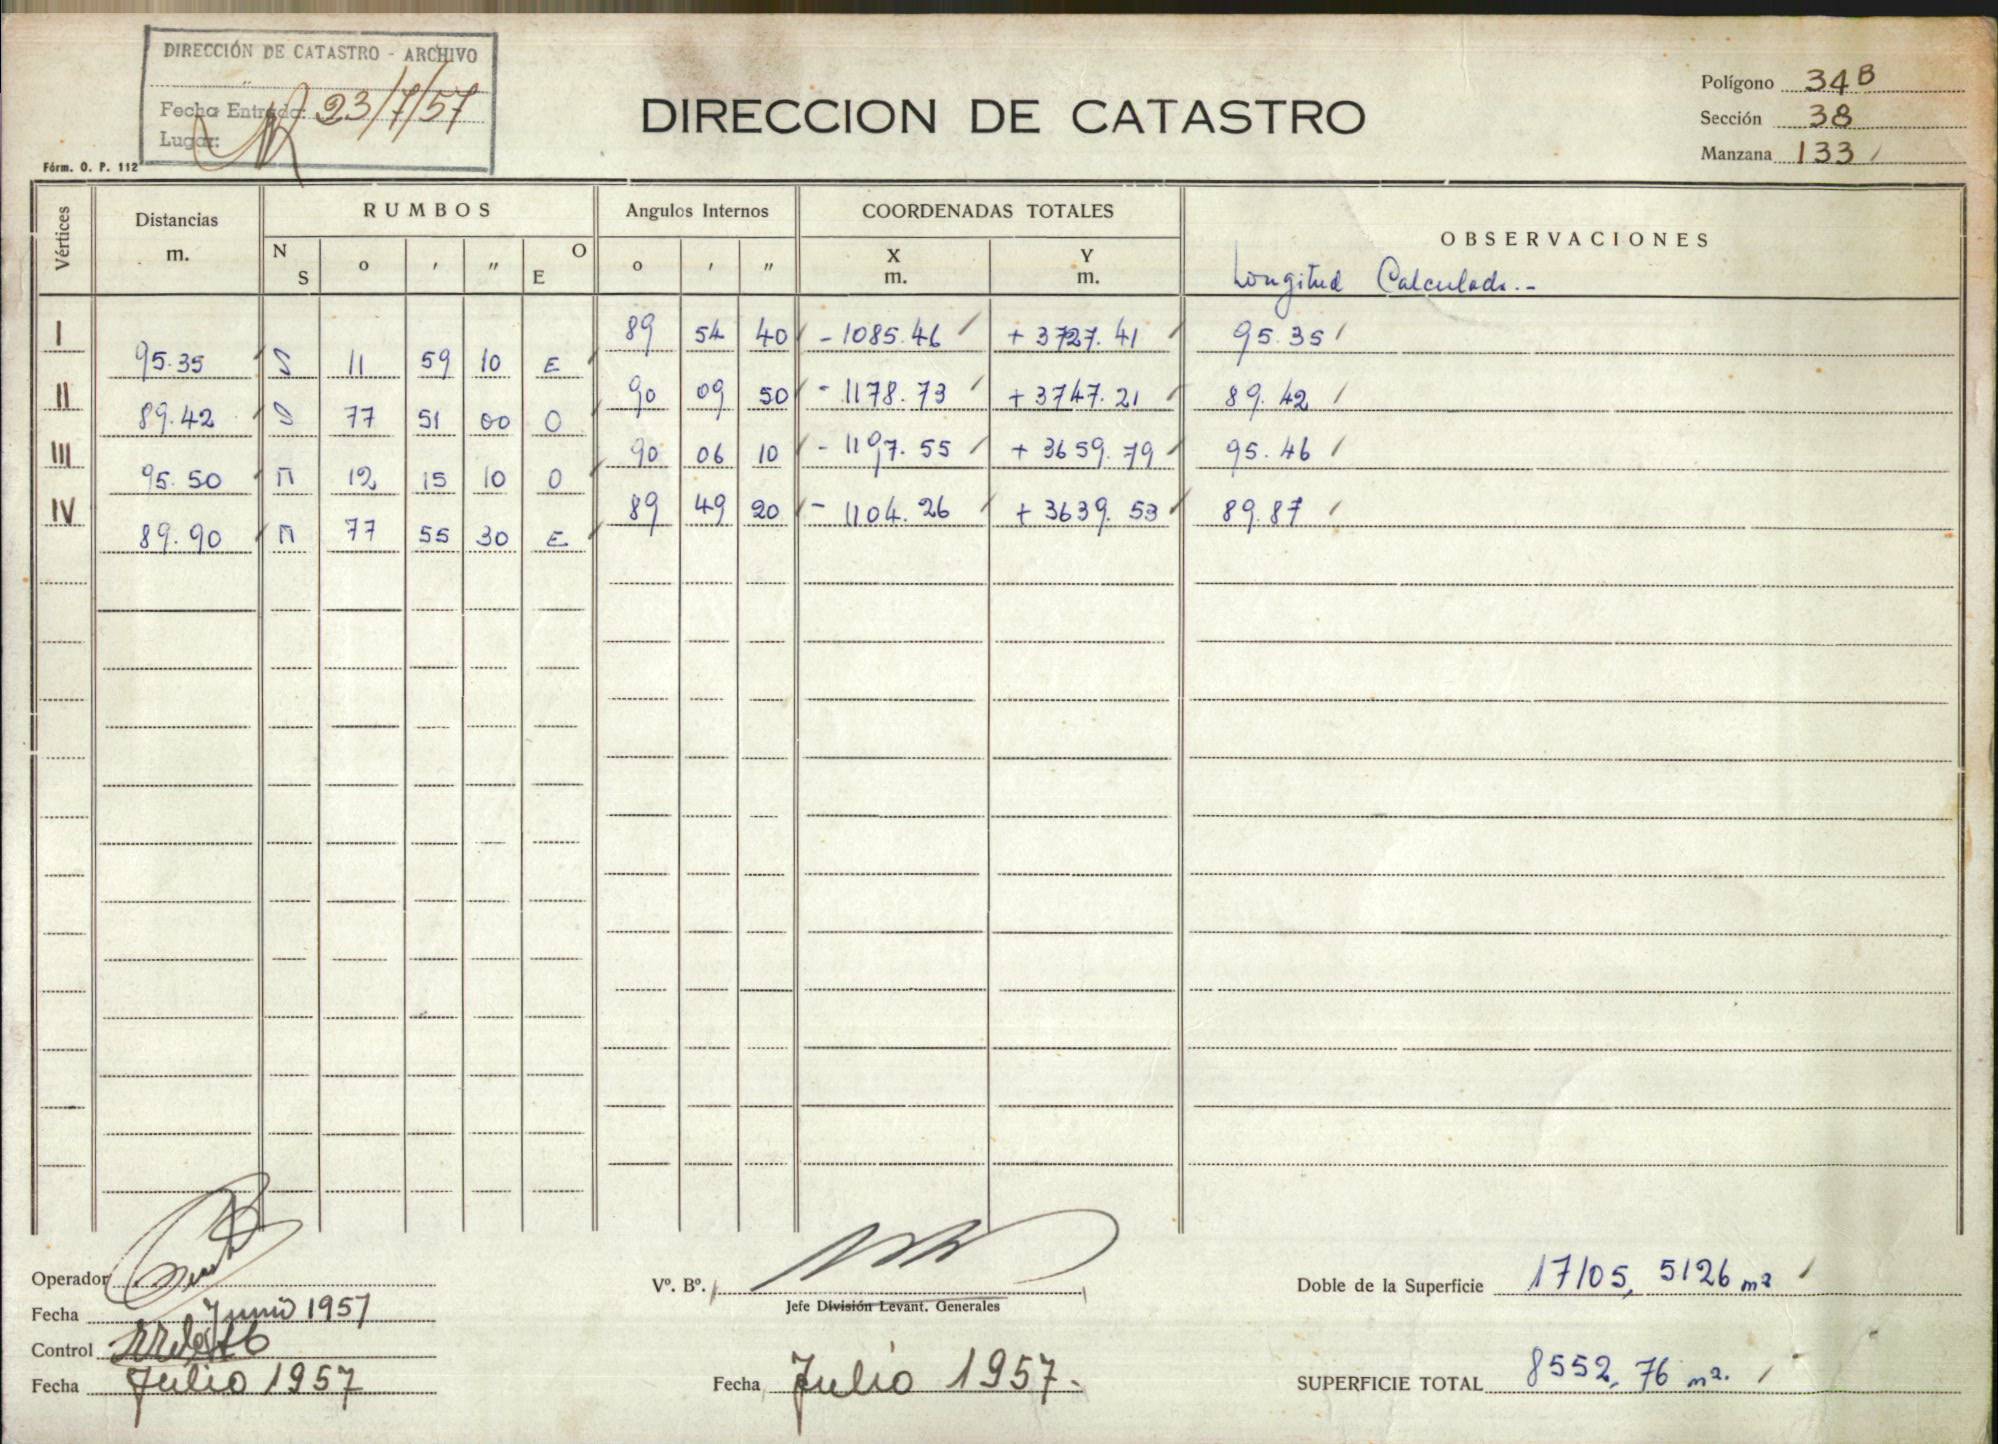 DIRECCIÓN DE CATASTRO - ARCHIVO
"
Fecha Entrada: 23/7/57
Lugar:
Fórm. O. P. 112
DIRECCION DE CATASTRO
Polígono 34B
Sección 38
Manzana 133
Vértices
Distancias m.
RUMBOS
N S o ' " O E
Angulos Internos
o ' "
COORDENADAS TOTALES
X m. Y m.
OBSERVACIONES
Longitud Calculada.-
I 89 54 40 - 1085.46 + 3727.41 95.35
95.35 S 11 59 10 E
II 90 09 50 - 1178.73 + 3747.21 89.42
89.42 S 77 51 00 O
III 90 06 10 - 1197.55 + 3659.79 95.46
95.50 N 12 15 10 O
IV 89 49 20 - 1104.26 + 3639.53 89.87
89.90 N 77 55 30 E
Operador
Fecha Junio 1957
Control
Fecha Julio 1957
Vº. Bº.
Jefe División Levant. Generales
Fecha Julio 1957.-
Doble de la Superficie 17105,5126 m2
SUPERFICIE TOTAL 8552,76 m2.